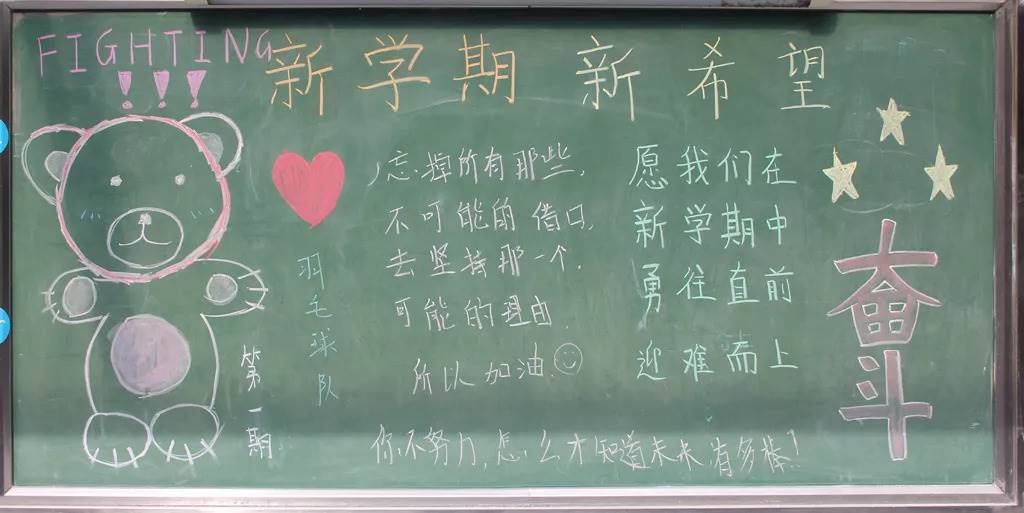 FIGHTING
!!!
新学期 新希望
忘掉所有那些,
不可能的借口,
去坚持那一个.
可能的理由.
所以加油.
愿我们在
新学期中
勇往直前
迎难而上
奋斗
羽毛球队
第一期
你不努力,怎么才知道未来有多棒!